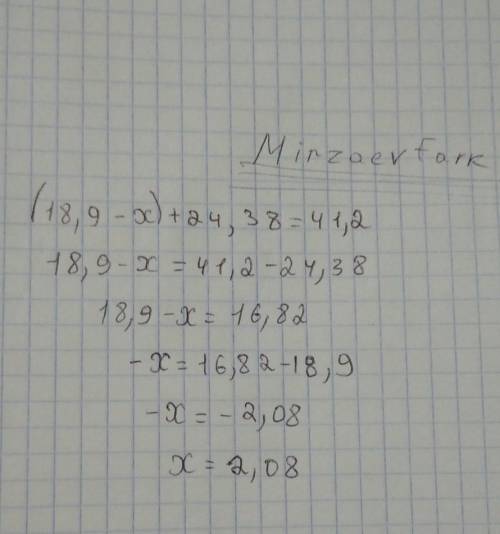 Minzaev fark
(18,9 - x) + 24,38 = 41,2
18,9 - x = 41,2 - 24,38
18,9 - x = 16,82
-x = 16,82 - 18,9
-x = - 2,08
x = 2,08